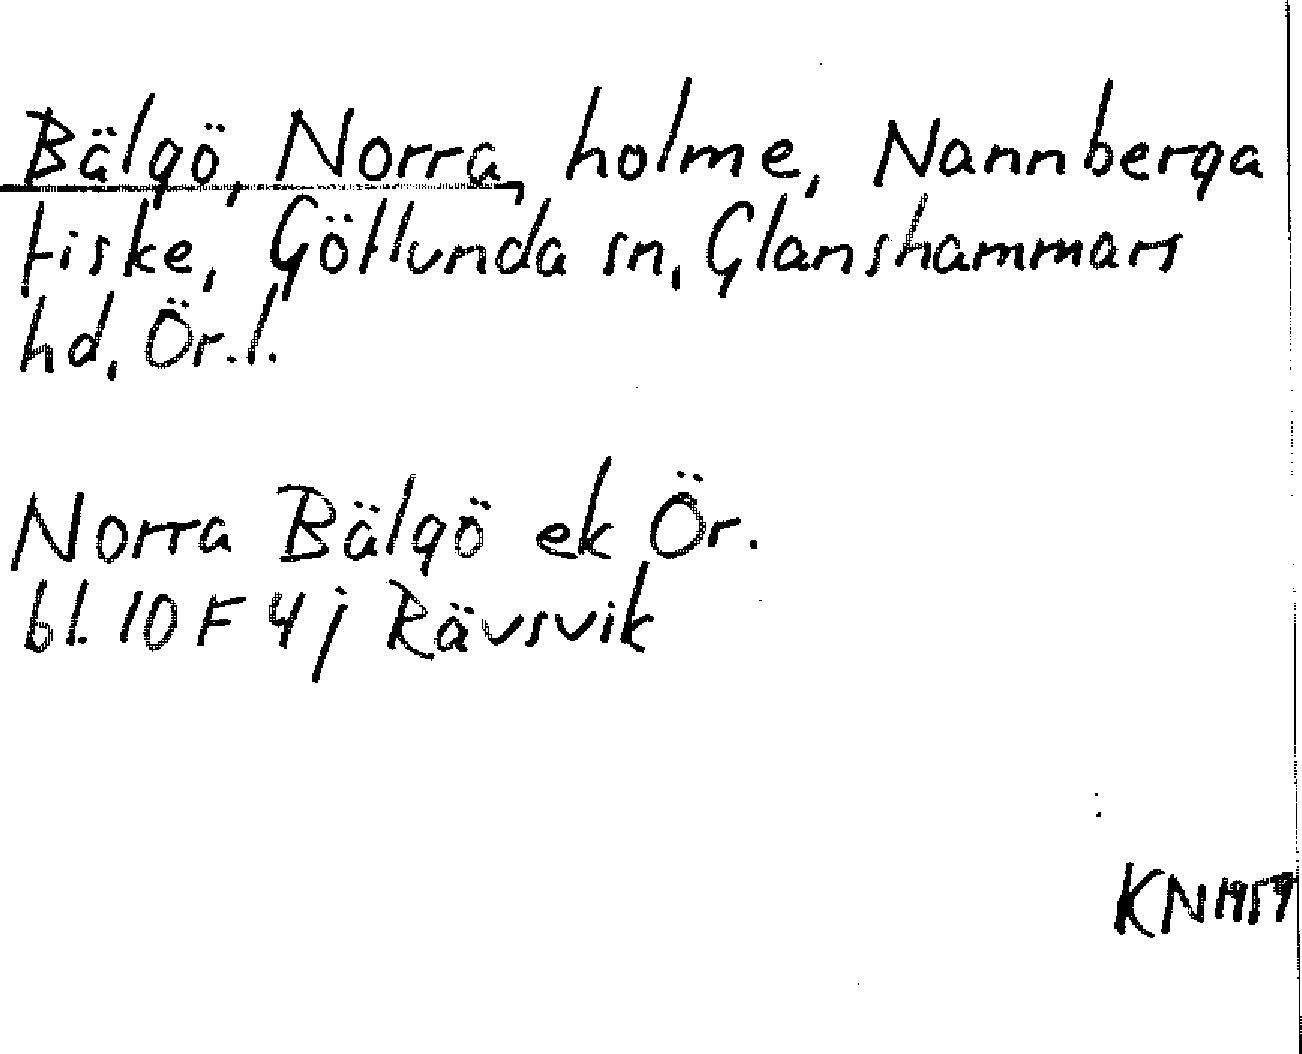 Bälgö, Norra, holme, Nannberga
fiske, Götlunda sn, Glanshammars
hd, Ör. l.
Norra Bälgö ek Ör.
bl. 10 F 4 j Rävsvik
KN 1959